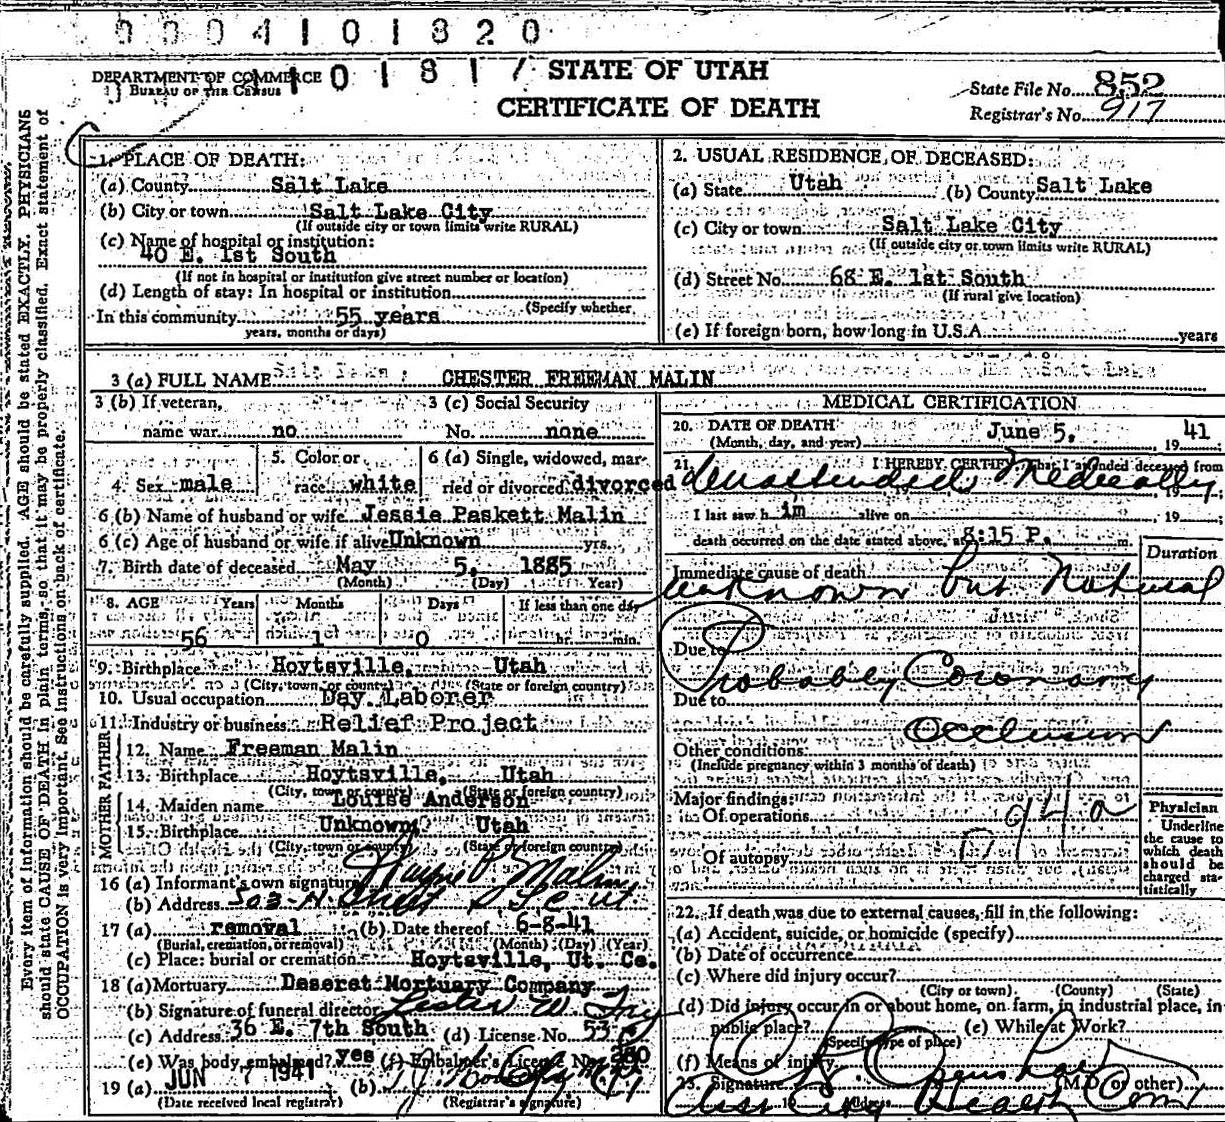 0004101820
101817
DEPARTMENT OF COMMERCE
BUREAU OF THE CENSUS
STATE OF UTAH
CERTIFICATE OF DEATH
State File No. 852
Registrar's No. 917
Every item of information should be carefully supplied. AGE should be stated EXACTLY. PHYSICIANS
should state CAUSE OF DEATH in plain terms, so that it may be properly classified. Exact statement of
OCCUPATION is very important. See instructions on back of certificate.
1. PLACE OF DEATH:
(a) County Salt Lake
(b) City or town Salt Lake City
(If outside city or town limits write RURAL)
(c) Name of hospital or institution:
40 E. 1st South
(If not in hospital or institution give street number or location)
(d) Length of stay: In hospital or institution
(Specify whether
In this community 55 years
years, months or days)
2. USUAL RESIDENCE OF DECEASED:
(a) State Utah (b) County Salt Lake
(c) City or town Salt Lake City
(If outside city or town limits write RURAL)
(d) Street No. 68 E. 1st South
(If rural give location)
(e) If foreign born, how long in U.S.A. years
3 (a) FULL NAME CHESTER FREEMAN MALIN
3 (b) If veteran,
name war no
3 (c) Social Security
No. none
4. Sex male
5. Color or
race white
6 (a) Single, widowed, mar-
ried or divorced divorced
6 (b) Name of husband or wife Jessie Paskett Malin
6 (c) Age of husband or wife if alive Unknown yrs.
7. Birth date of deceased May 5, 1885
(Month) (Day) (Year)
8. AGE Years Months Days If less than one day
56 1 0 hr. min.
9. Birthplace Hoytsville, Utah
(City, town or county) (State or foreign country)
10. Usual occupation Day Laborer
11. Industry or business Relief Project
FATHER
12. Name Freeman Malin
13. Birthplace Hoytsville, Utah
(City, town or county) (State or foreign country)
MOTHER
14. Maiden name Louise Anderson
15. Birthplace Unknown, Utah
(City, town or county) (State or foreign country)
16 (a) Informant's own signature Malin
(b) Address 503-N
17 (a) removal (b) Date thereof 6-8-41
(Burial, cremation, or removal) (Month) (Day) (Year)
(c) Place: burial or cremation Hoytsville, Ut. Co.
18 (a) Mortuary Deseret Mortuary Company
(b) Signature of funeral director Lester W. Fry
(c) Address 36 E. 7th South (d) License No. 53
(e) Was body embalmed? yes (f) Embalmer's License No. 280
19 (a) JUN 7 1941 (b)
(Date received local registrar) (Registrar's signature)
MEDICAL CERTIFICATION
20. DATE OF DEATH
(Month, day, and year) June 5, 1941
21. I HEREBY CERTIFY, That I attended deceased from
Unattended Medically
19
I last saw h im alive on , 19
death occurred on the date stated above, at 8:15 P. m.
Duration
Immediate cause of death
unknown but Natural
Due to
Probably Coronary
Due to
Occlusion
Other conditions
(Include pregnancy within 3 months of death)
Major findings:
Of operations
94a
Of autopsy
Physician
Underline
the cause to
which death
should be
charged sta-
tistically
22. If death was due to external causes, fill in the following:
(a) Accident, suicide, or homicide (specify)
(b) Date of occurrence
(c) Where did injury occur?
(City or town) (County) (State)
(d) Did injury occur in or about home, on farm, in industrial place, in
public place? (e) While at Work?
(Specify type of place)
(f) Means of injury
23. Signature (M.D. or other)
Address City Health Com